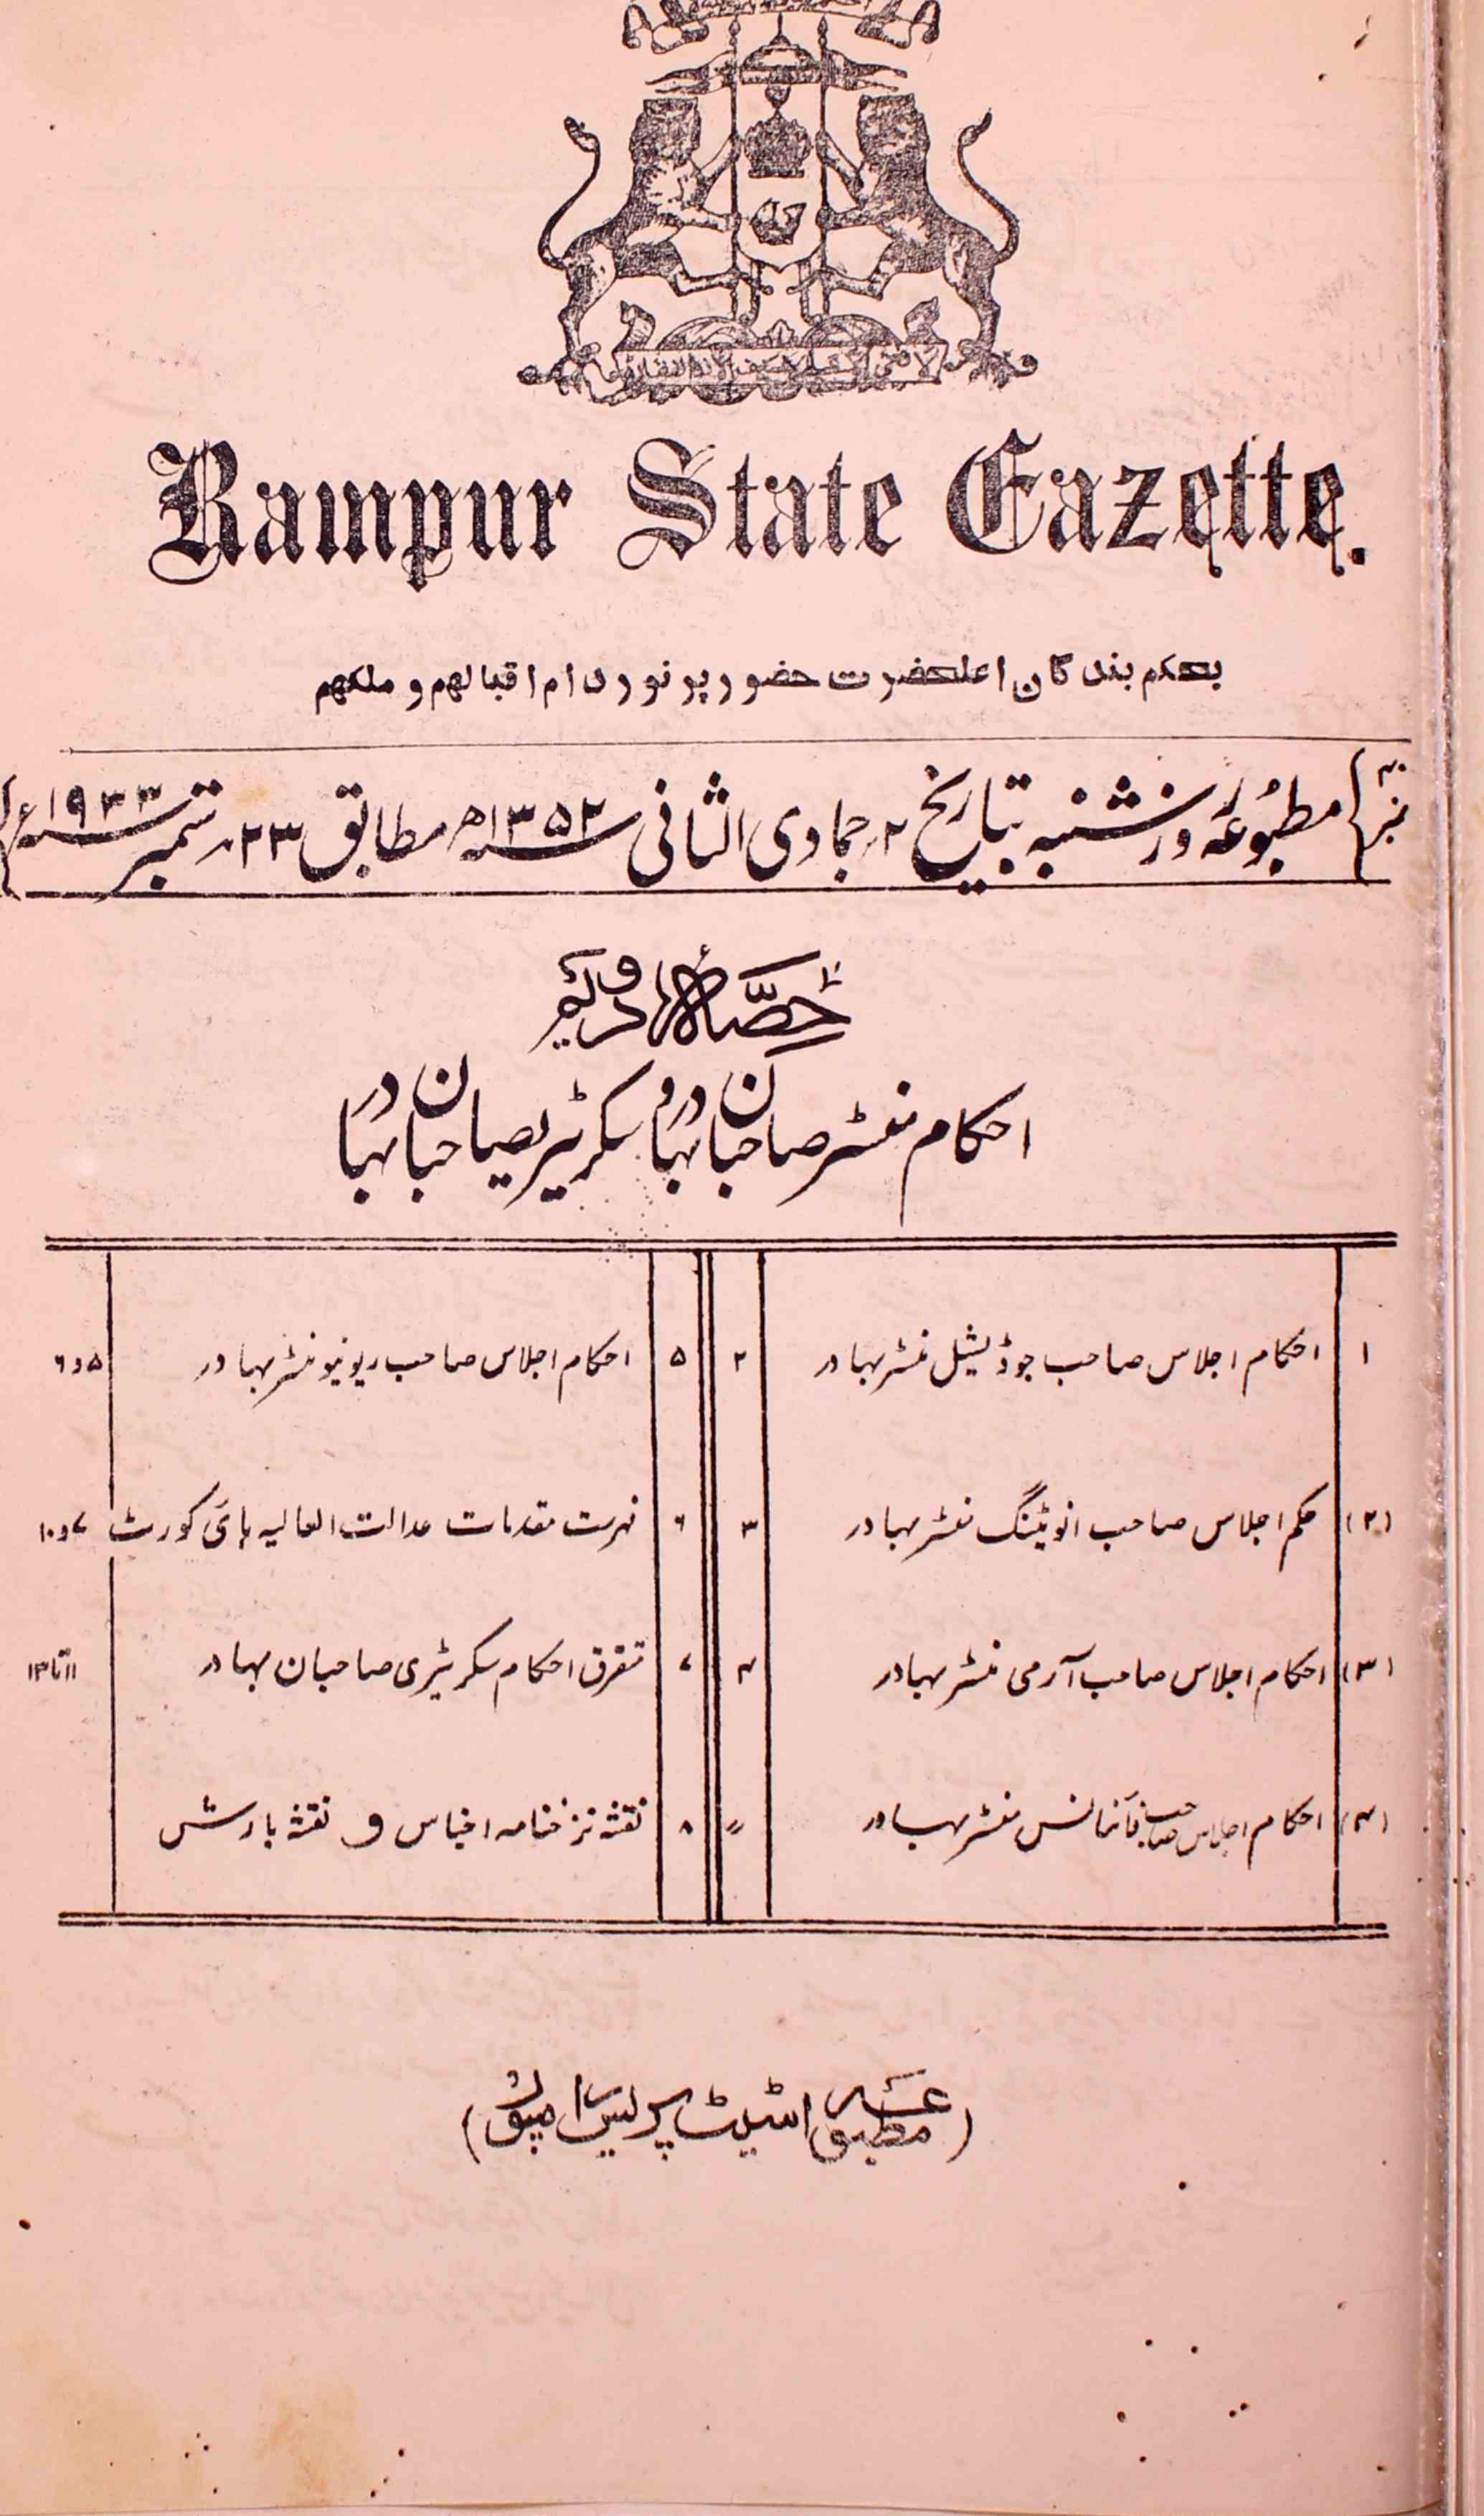 Rampur State Gazette.
بحکم بندگان اعلحضرت حضور پرنور دام اقبالہم و ملکہم
نمبر مطبوعہ روز شنبہ بتاریخ ۲ جمادی الثانی سنہ ۱۳۵۲ھ مطابق ۲۳ ستمبر سنہ ۱۹۳۳ء
حصہ اردو
احکام منسٹر صاحبان بہادر و سکریٹری صاحبان بہادر
۱ احکام اجلاس صاحب جوڈیشیل منسٹر بہادر ۲
(۲) حکم اجلاس صاحب انوٹینگ منسٹر بہادر ۳
(۳) احکام اجلاس صاحب آرمی منسٹر بہادر ۴
(۴) احکام اجلاس صاحب فائنانس منسٹر بہادر ״
۵ احکام اجلاس صاحب ریونیو منسٹر بہادر ۵ و ۶
۶ فہرست مقدمات عدالت العالیہ ہائی کورٹ ۷ و ۱۰
۷ متفرق احکام سکریٹری صاحبان بہادر ۱۱ تا ۱۳
۸ نقشہ نرخنامہ اجناس و نقشہ بارش
(مطبوعہ اسٹیٹ پریس رامپور)